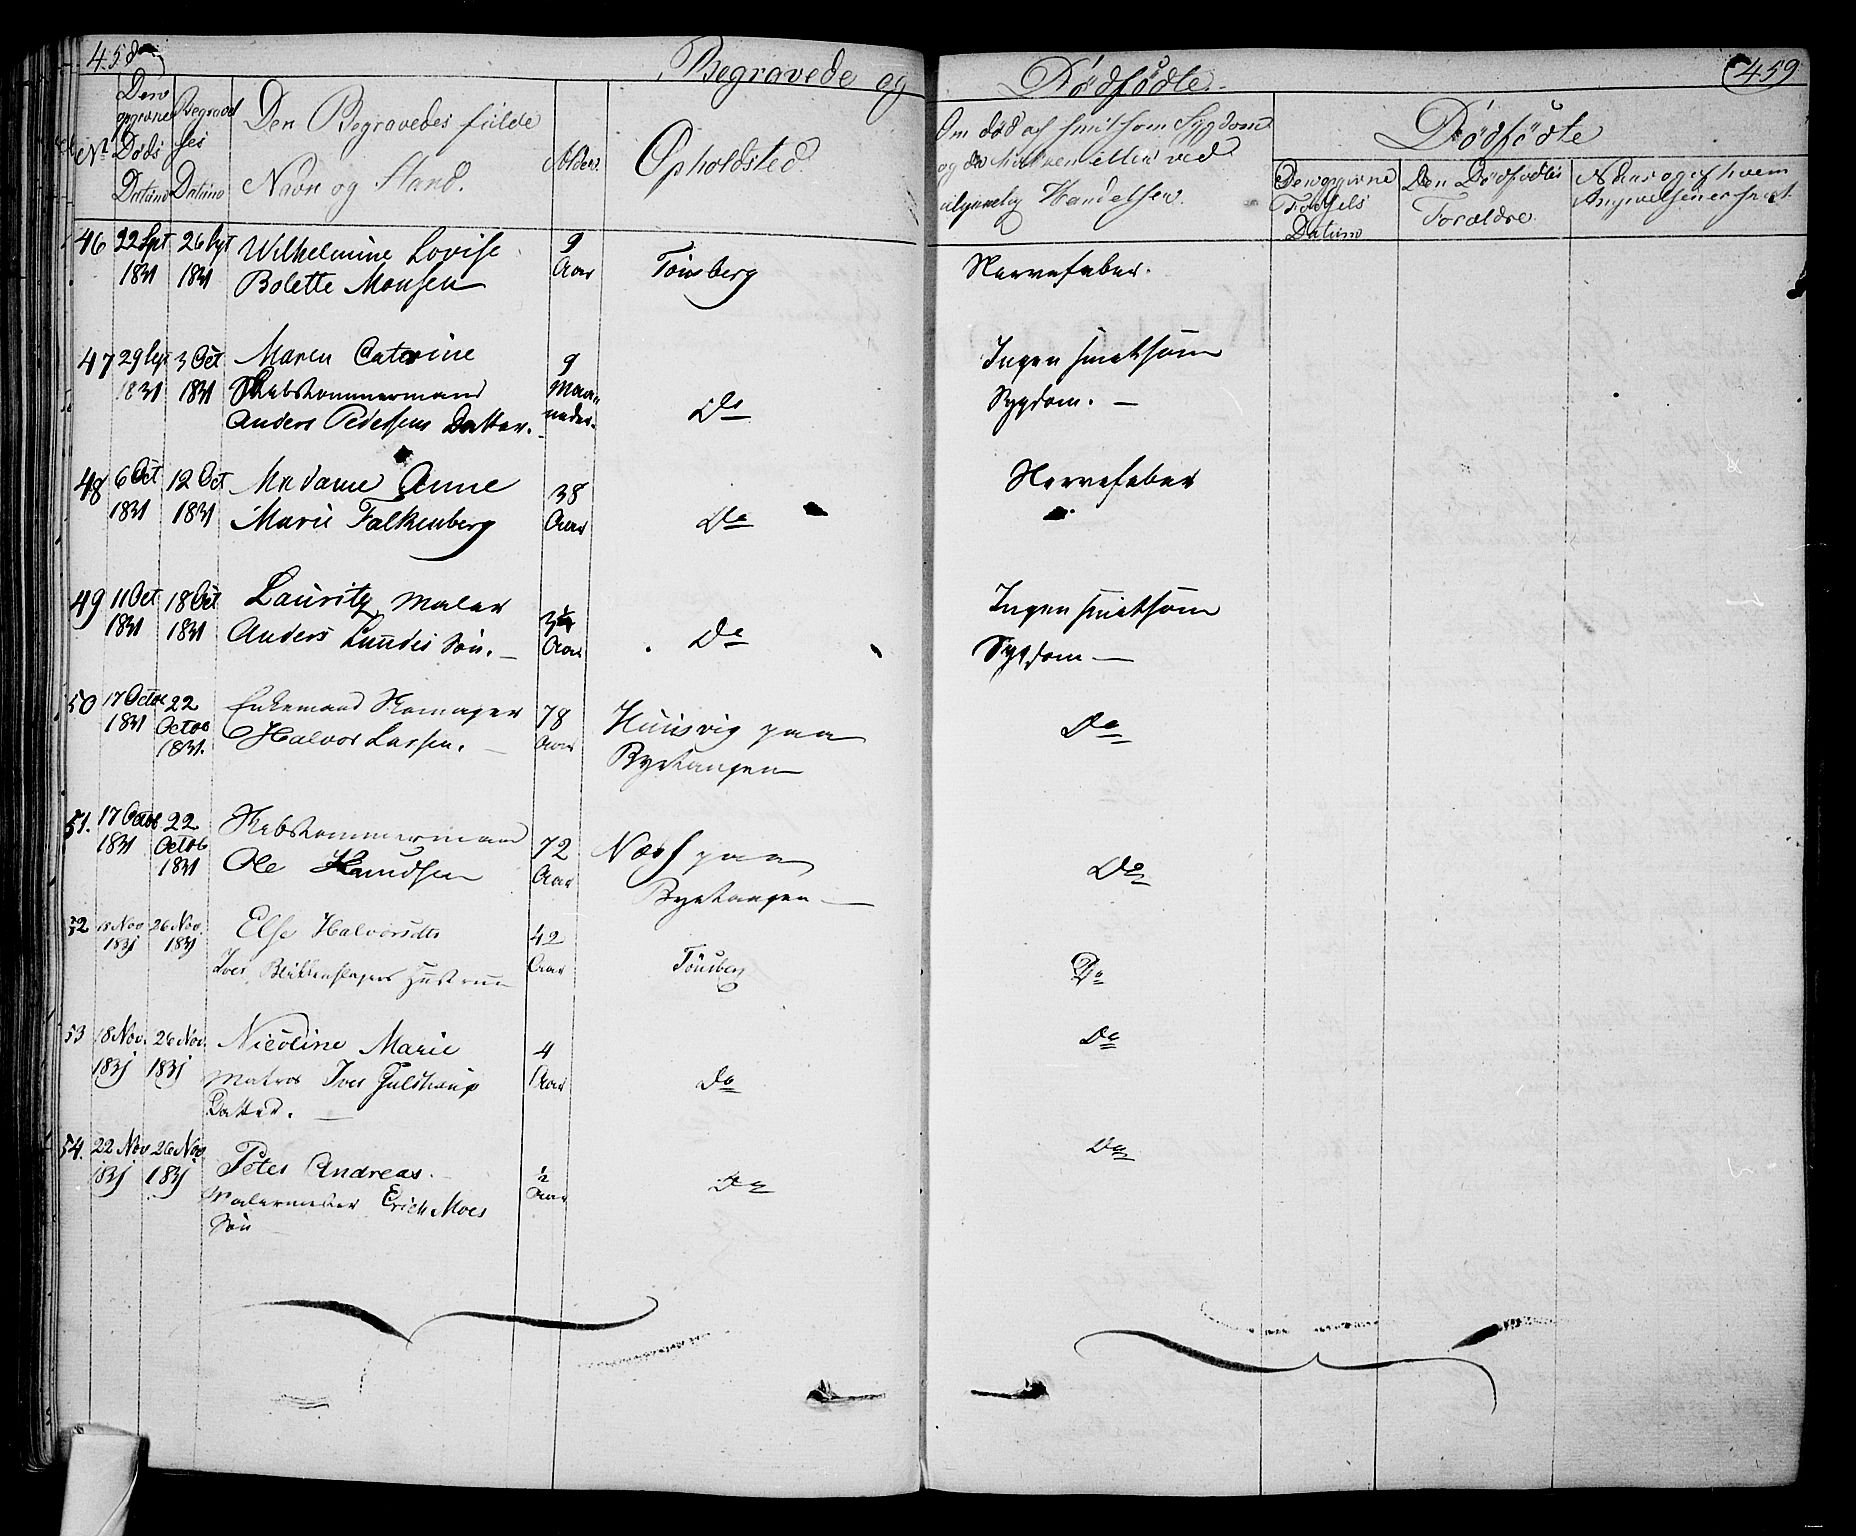 458
Begravede og
Den opgivne Døds Datum
Begravelses Datum
Den Begravedes fulde
Navn og Stand.
Alder.
Opholdsted.
46 22 Sept 26 Sept Wilhelmine Lovise 9
1831 1831 Bolette Monsen Aar Tönsberg
47 29 Sept 3 Oct Maren Catrine 9
1831 1831 Skibstømmermand Maa-
Anders Pedersens Datter. neder. Do
48 6 Oct 12 Oct Madame Anne 38
1831 1831 Marie Falkenberg Aar Do
49 11 Oct 18 Oct Lauritz Maler
1831 1831 Anders Lundes Søn. Aar Do
50 17 Octob 22 Enkemand Skomager 78 Huusvig paa
1831 Octob Halvor Larsen. Aar Byetangen
1831.
51. 17 Octob 22 Skibstømmermand 72 Næss paa
1831 Octob Ole Knudsen Aar Byetangen
1831
52 18 Nov 26 Nov. Else Halvorsdtr 42
1831 1831 Iver Blikkenslagers Hustrue Aar Tönsberg
53 18 Nov. 26 Nov. Nicoline Marie 4
1831 1831 Matros Iver Julstrup Aar Do
Datter.
54. 22 Nov 26 Nov. Peter Andreas. ½
1831 1831 Malermester Erich Moes Aar Do
Søn
Dödfödte.
459
Om död af smitsom Sygdom
og da hvilken eller ved
ulykkelig Hændelser.
Dödfödte
Den opgivne
Fødsels
Datum
Den Dödfødtes
Forældre.
Naar og af hvem
Angivelsen er skeet
Nervefeber.
Ingen smitsom
Sygdom.
Nervefeber
Ingen smitsom
Sygdom
Do
Do
Do
Do
Do